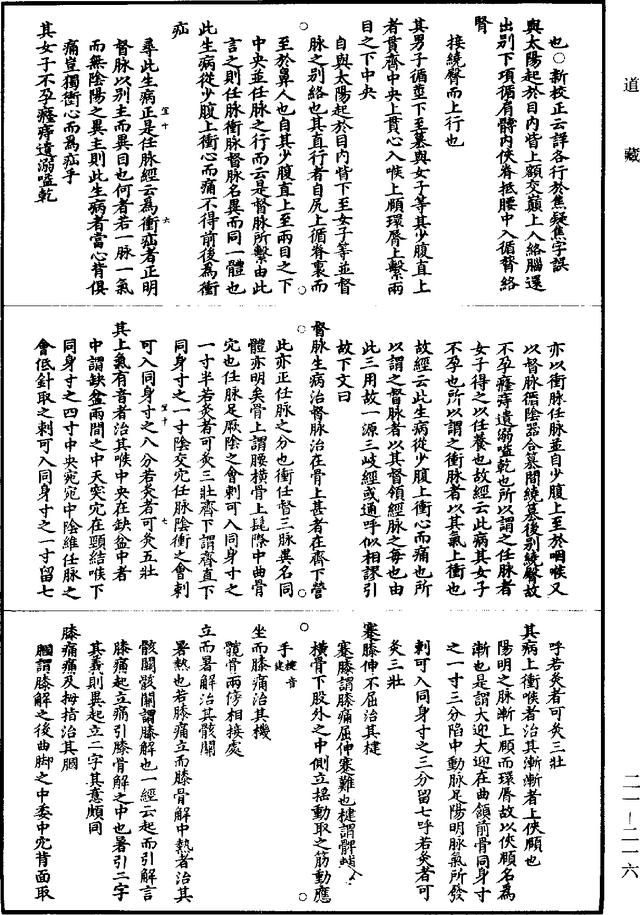 道藏
也○新校正云詳各行於焦疑焦字誤
與太陽起於目內眥上額交巔上入絡腦還
出別下項循肩髆內俠脊抵腰中入循膂絡
腎
接繞臀而上行也
其男子循莖下至篡與女子等其少腹直上
者貫齊中央上貫心入喉上頤環脣上繫兩
目之下中央
自與太陽起於目內眥下至女子等並督
脉之別絡也其直行者自尻上循脊裏而
至於鼻人也自其少腹直上至兩目之下
中央並任脉之行而云是督脉所繫由此
言之則任脉衝脉督脉名異而同一體也
此生病從少腹上衝心而痛不得前後為衝
疝
尋此生病正是任脉經云為衝疝者正明
督脉以別主而異目也何者若一脉一氣
而無陰陽之異主則此生病者當心背俱
痛豈獨衝心而為疝乎
其女子不孕癃痔遺溺嗌乾
亦以衝脉任脉並自少腹上至於咽喉又
以督脉循陰器合篡間繞篡後別繞臀故
不孕癃痔遺溺嗌乾也所以謂之任脉者
女子得之以任養也故經云此病其女子
不孕也所以謂之衝脉者以其氣上衝也
故經云此生病從少腹上衝心而痛也所
以謂之督脉者以其督領經脉之每也由
此三用故一源三歧經或通呼似相謬引
故下文曰
督脉生病治督脉治在骨上甚者在齊下營
此亦正任脉之分也衝任督三脉異名同
體亦明矣骨上謂腰橫骨上毛際中曲骨
穴也任脉足厥陰之會刺可入同身寸之
一寸半若灸者可灸三壯齊下謂齊直下
同身寸之一寸陰交穴任脉陰衝之會刺
可入同身寸之八分若灸者可灸五壯
其上氣有音者治其喉中央在缺盆中者
中謂缺盆兩間之中天突穴在頸結喉下
同身寸之四寸中央宛宛中陰維任脉之
會低針取之刺可入同身寸之一寸留七
呼若灸者可灸三壯
其病上衝喉者治其漸漸者上俠頤也
陽明之脉漸上頤而環脣故以俠頤名為
漸也是謂大迎大迎在曲頷前骨同身寸
之一寸三分陷中動脉足陽明脉氣所發
刺可入同身寸之三分留七呼若灸者可
灸三壯
蹇膝伸不屈治其楗
蹇膝謂膝痛屈伸蹇難也楗謂髀輔
橫骨下股外之中側立搖動取之筋動應
手
坐而膝痛治其機
髖骨兩傍相接處
立而暑解治其骸關
暑熱也若膝痛立而膝骨解中熱者治其
骸關骸關謂膝解也一經云起而引解言
膝痛起立痛引膝骨解之中也暑引二字
其義則異起立二字其意頗同
膝痛痛及拇指治其膕
膕謂膝解之後曲脚之中委中穴背面取
二一—二一六